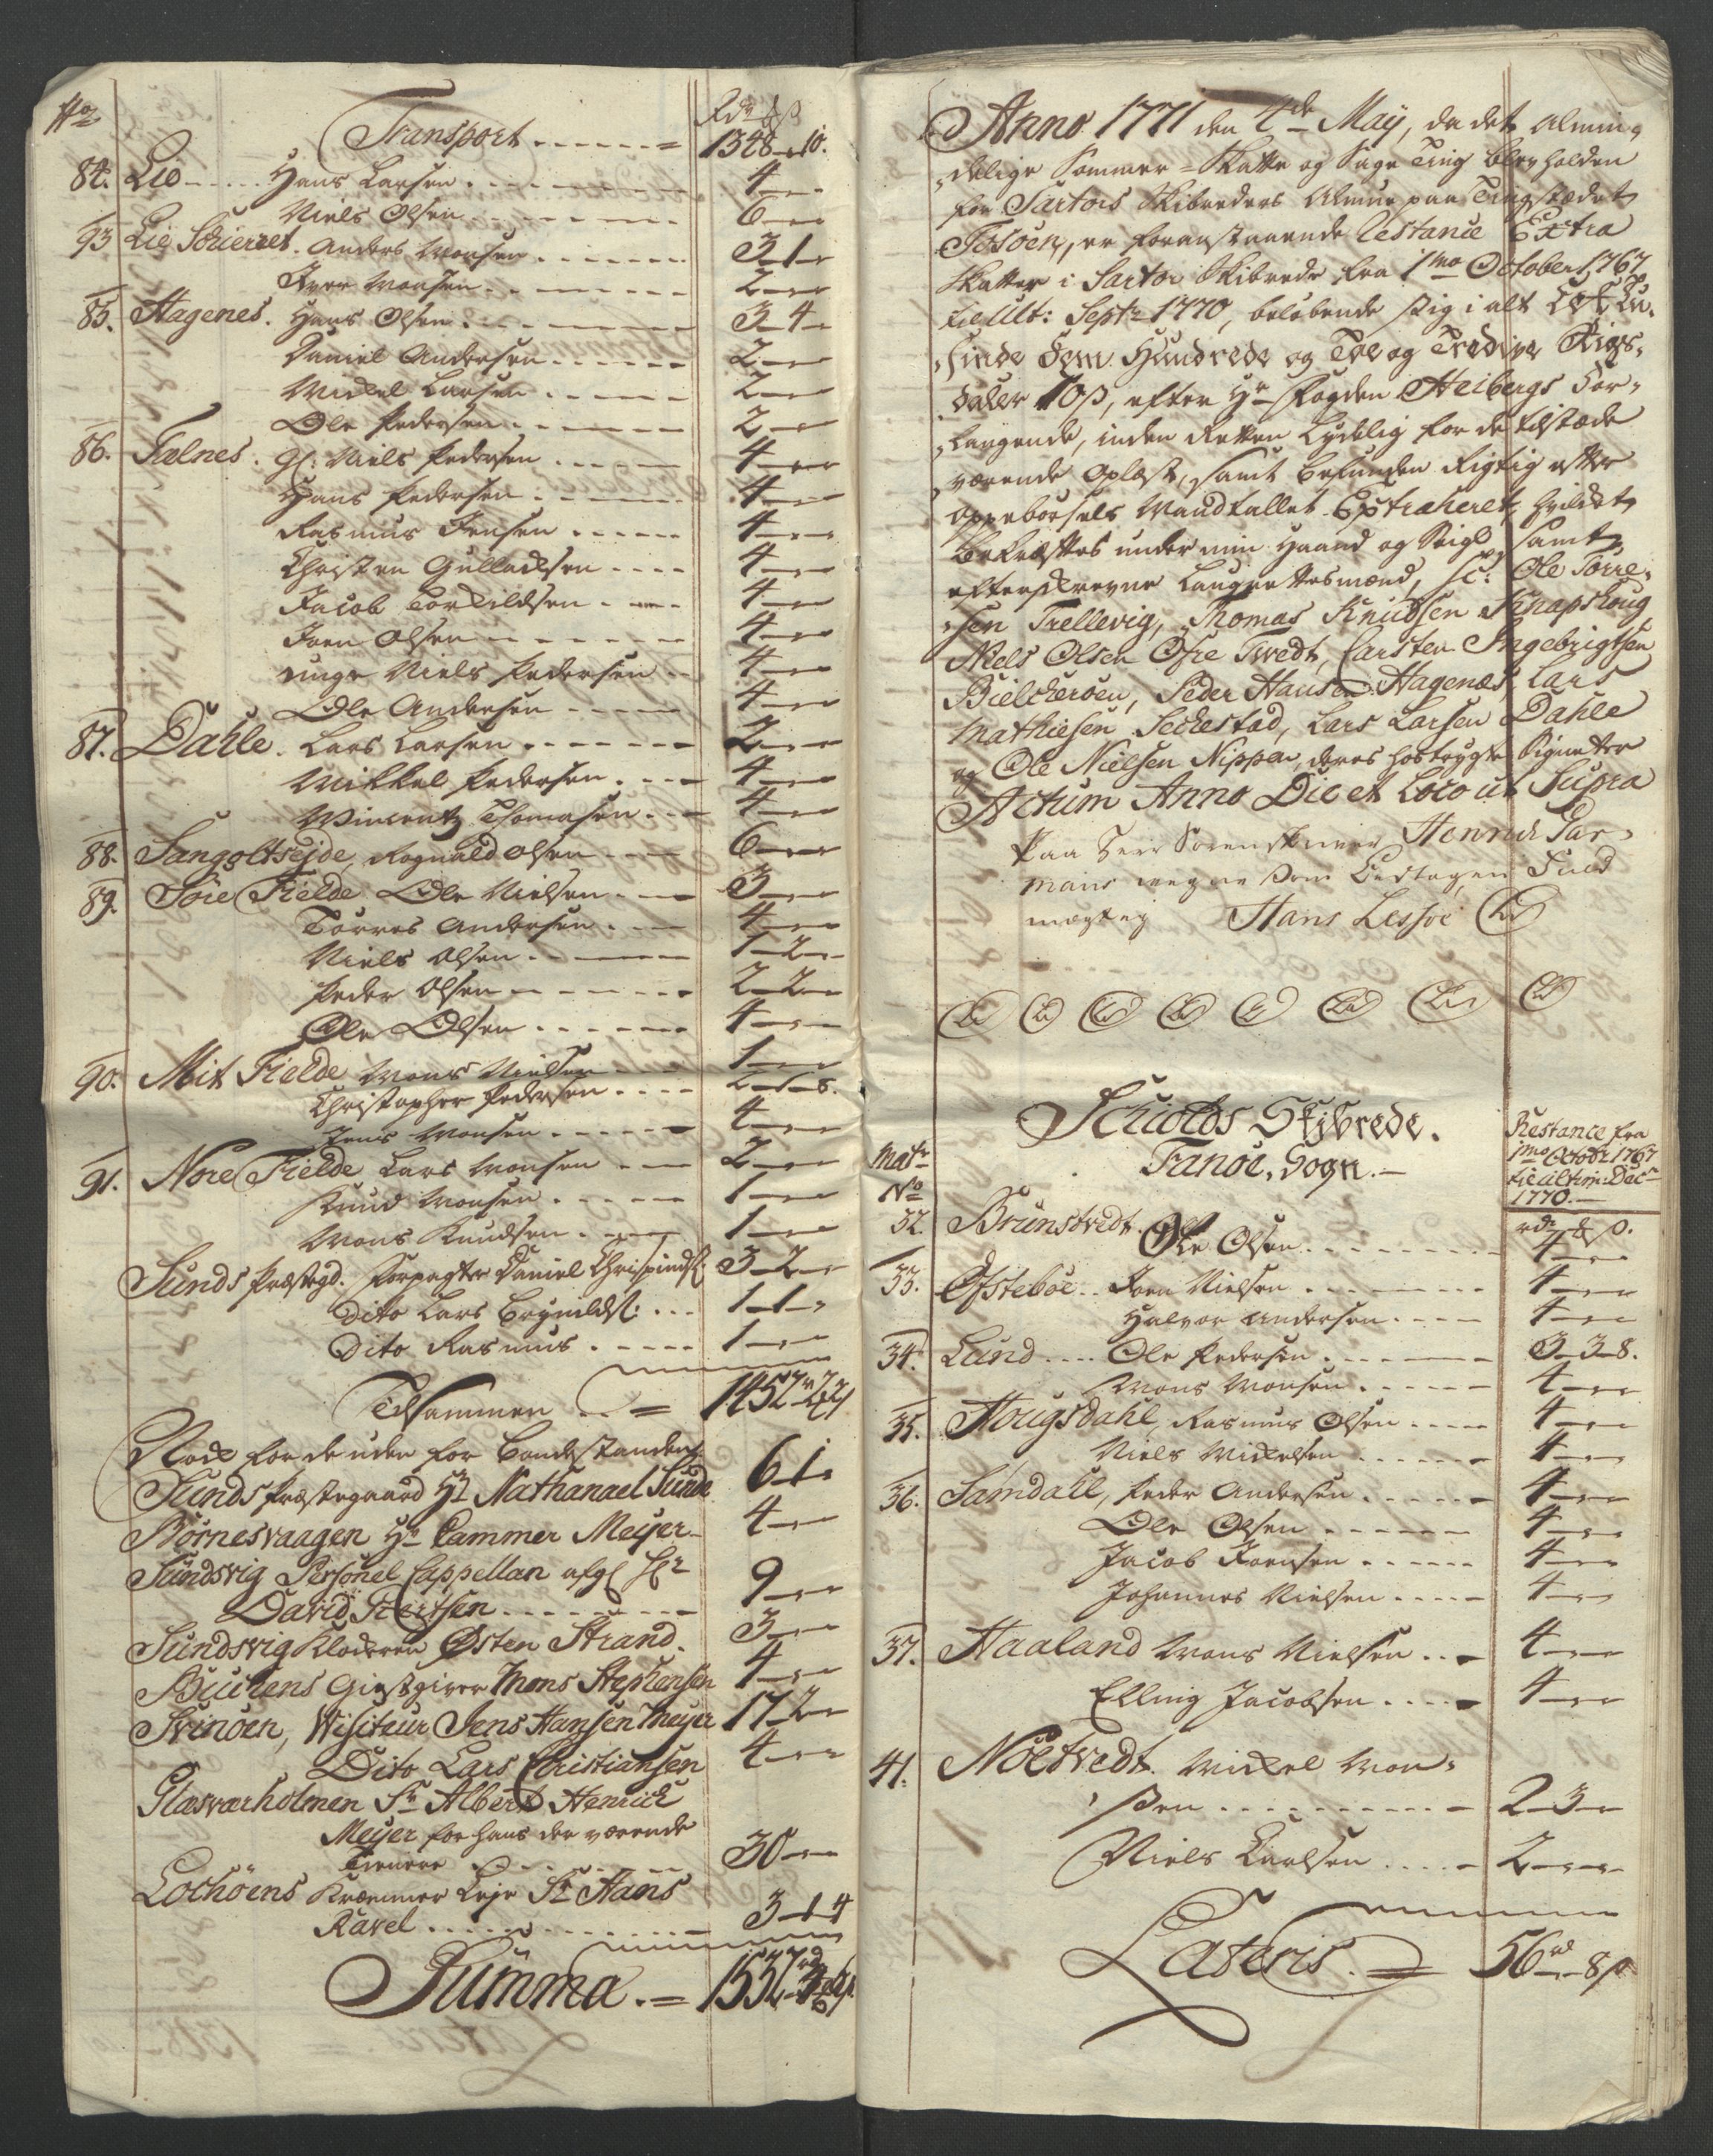 No
Rdr ß
Transport . . . . . . = 1348 " 10.
84. Lie . . . . Hans Larsen . . . . 4 " "
Niels Olsen . . . . 6 " "
93 Lie Skierret. Anders Monsen . . . . 3 1 "
Iver Monsen . . . . 2 " "
85. Hagenes. Hans Olsen . . . . 3 4 "
Daniel Andersen . . . . 2 " "
Mickel Larsen . . . . 2 " "
Ole Pedersen . . . . 2 " "
86. Tælnes. Gl: Niels Pedersen . . . . 4 " "
Hans Pedersen . . . . 4 " "
Rasmus Jensen . . . . 4 " "
Christen Gulladsen . . . . 4 " "
Jacob Torkildsen . . . . 4 " "
Joen Olsen . . . . 4 " "
unge Niels Pedersen . . 4 " "
Ole Andersen . . . . 4 " "
87. Dahle. Lars Larsen . . . . 2 " "
Mikkel Pedersen . . . . 4 " "
Wincentz Thomasen . . . 4 " "
88. Sangoltsejde, Rognald Olsen . . . 6 " "
89. Søre Fielde Ole Nielsen . . . 3 " "
Torres Andersen . . . 4 " "
Niels Olsen . . . . 1 2 "
Peder Olsen . . . . 2 2 "
Ole Olsen . . . . 4 " "
90. Mit Fielde Mons Nielsen . . . 1 " "
Christopher Pedersen . . . . 2 1 8.
Jens Monsen . . . . 4 " "
91. Nore Fielde Lars Monsen . . . 2 " "
Knud Monsen . . . . 1 " "
Mons Knudsen . . . . 1 " "
Sunds Præstegd. Forpagter Daniel Chrispinds: 3 2 "
Dito Lars Brynilds: . . . 1 1 "
Dito Rasmus . . . . 1 " "
Tilsammen . . = 1452
Nok for de uden for bondestanden
Sunds Præstegaard Hr Nathanael Sunde 6 1 "
Børnesvaagen Hr Cammer Meyer 4 " "
Sundsvig Personel Cappellan afg Hr
David Giertsen . . . . 9 " "
Sundsvig Klokeren Østen Strand. 3 " "
Buckens Giestgiver Mons Stephensen 4 " "
Svinøen, Visiteur Jens Hansen Meyer 17 2 "
Dito Lars Christiansen 4 " "
Glæsværholmen Sr Albert Henrick
Meyer for hans der værende
Tienere . . . . 30 " "
Lochøens Kræmmer Leje Sr Hans
Ravel . . . . 3 1 4
Summa. = 1532
Anno 1771 den 4de May, da det almin-
delige Sommer-Skatte og Sage Ting blev holden
for Sartors Skibreedes Almue paa Tingstædet
Tøsøen, er foranstaaende Restance Extra
Skatter i Sartor Skibrede fra 1mo October 1767
til Ult: Septr 1770, beløbende sig i alt Eet Tu-
sinde Fem Hundrede og Toe og Tredive Rigs-
daler 10 ß, efter Hr Fogden Heibergs For-
langende, inden Retten Lydelig for de tilstæde
værende Oplæst, samt befunden Rigtig efter
Oppebørsels Mandtallet Extraheret, hvilket
bekræftes under min Haand og Seigl, samt
efterskrevne Laugrettesmænd, sc: Ole Torre-
sen Trellevig, Thomas Knudsen Knapskoug
Niels Olsen Øfre Tvedt, Carsten Ingebrigtsen
Bielckerøen, Peder Hansen Hagenæs, Lars
Mathiesen Seckestad, Lars Larsen Dahle
og Ole Nielsen Nippen, deres hostrygte Signeter
Actum Anno Die et Loco ut Supra
Paa Herr Sorenskriver Henrich Gar-
mans wegne som Edtagen Fuld
mægtig Hans Lessøe
Schiolds Skibrede.
Fanøe, Sogn.
Restance fra
1mo Octobr 1767
til ultim: Decr
1770.
Matr
No
rdr ß.
32. Brunstvedt. Ole Olsen . . . . 4 " "
33. Østebøe. . Joen Nielsen . . . . 4 " "
Halvor Andersen . . . . 4 " "
34. Lund . . . . Ole Pedersen . . . . 3 3 8.
Mons Monsen . . . . 4 " "
35. Hougsdahl, Rasmus Olsen . . . . 4 " "
Niels Mickelsen . . . . 4 " "
36. Samdall, Peder Andersen . . . . 4 " "
Ole Olsen . . . . 4 " "
Jacob Joensen . . . . 4 " "
Johannes Nielsen . . . . 4 " "
37. Haaland Mons Nielsen . . . 4 " "
Elling Jacobsen . . . . 4 " "
41. Nøetvedt. Mickel Mon-
sen . . . . 2 3 "
Niels Carlsen . . . . 2 " "
Lateris. = 56rd " 8 ß